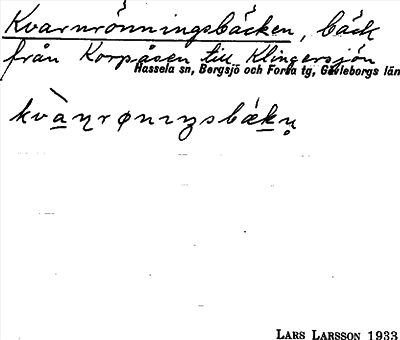 Kvarnrönningsbäcken, bäck
från Korpåsen till Klingersjön
Hassela sn, Bergsjö och Forsa tg, Gävleborgs län
LARS LARSSON 1933